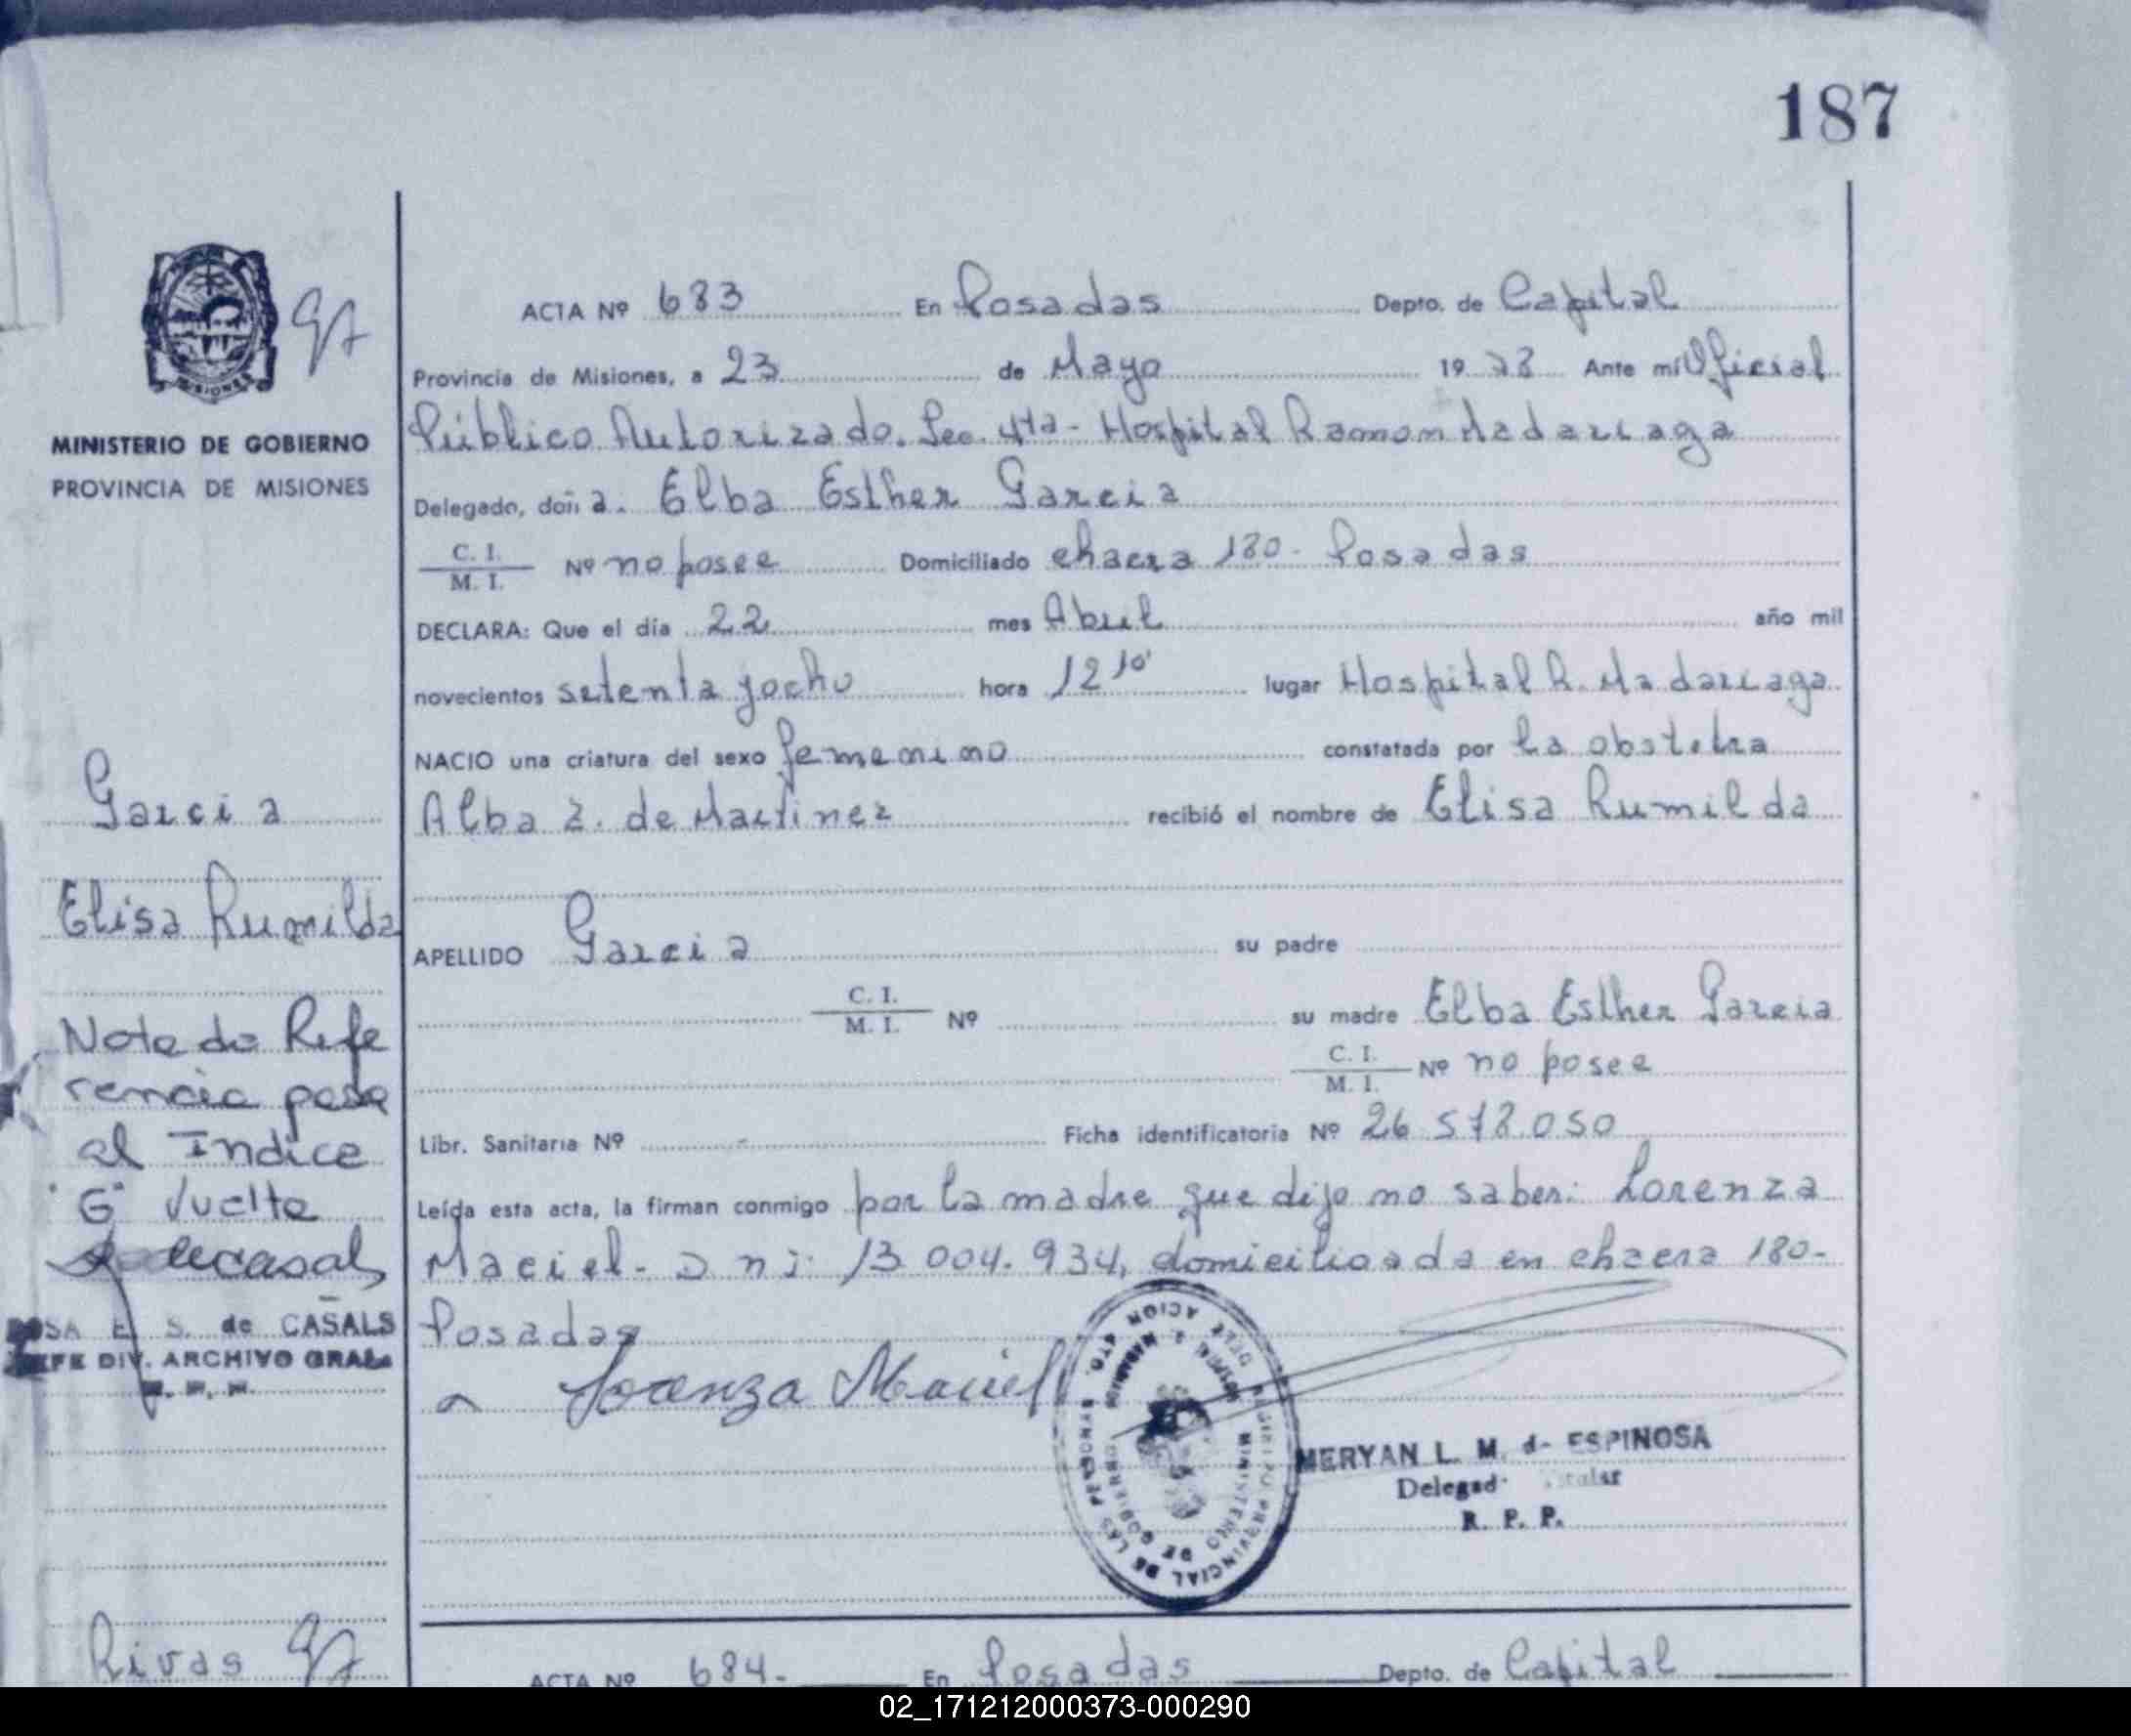 187
ACTA Nº 683 En Posadas Depto. de Capital
Provincia de Misiones, a 23 de Mayo 19 78 Ante mi Oficial
Público Autorizado. Sec. 4ta - Hospital Ramon Madariaga
MINISTERIO DE GOBIERNO
PROVINCIA DE MISIONES
Delegado, doña. Elba Esther Garcia
C. I.
M. I. Nº no posee Domiciliado chacra 180 - Posadas
DECLARA: Que el día 22 mes Abril año mil
novecientos setenta y ocho hora 12 10' lugar Hospital R. Madariaga
NACIO una criatura del sexo femenino constatada por la obstetra
Alba Z. de Martinez recibió el nombre de Elisa Rumilda
APELLIDO Garcia su padre
C. I.
M. I. Nº su madre Elba Esther Garcia
C. I.
M. I. Nº no posee
Libr. Sanitaria Nº - Ficha identificatoria Nº 26 578.050
Leída esta acta, la firman conmigo por la madre que dijo no saber: Lorenza
Maciel - D n i: 13 004.934, domiciliada en chacra 180-
Posadas
Lorenza Maciel
MERYAN L. M. d- ESPINOSA
Delegad Titular
R. P. P.
Garcia
Elisa Rumilda
Nota de Refe
rencia pasa
al Indice
"G" Vuelta
S. de CASALS
DIV. ARCHIVO GRAL.
Rivas
ACTA Nº 684- En Posadas Depto. de Capital
02_171212000373-000290